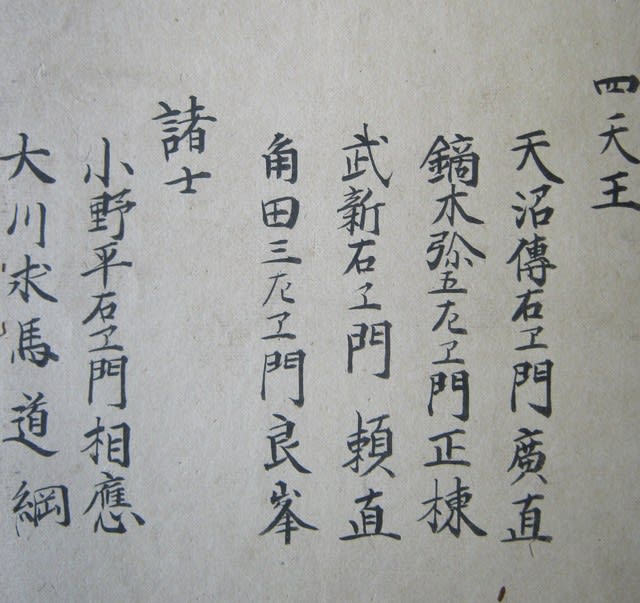 四天王
天沼傳右エ門廣直
鏑木弥五左エ門正棟
武新右エ門頼直
角田三左エ門良峯
諸士
小野平右エ門相應
大川求馬道綱